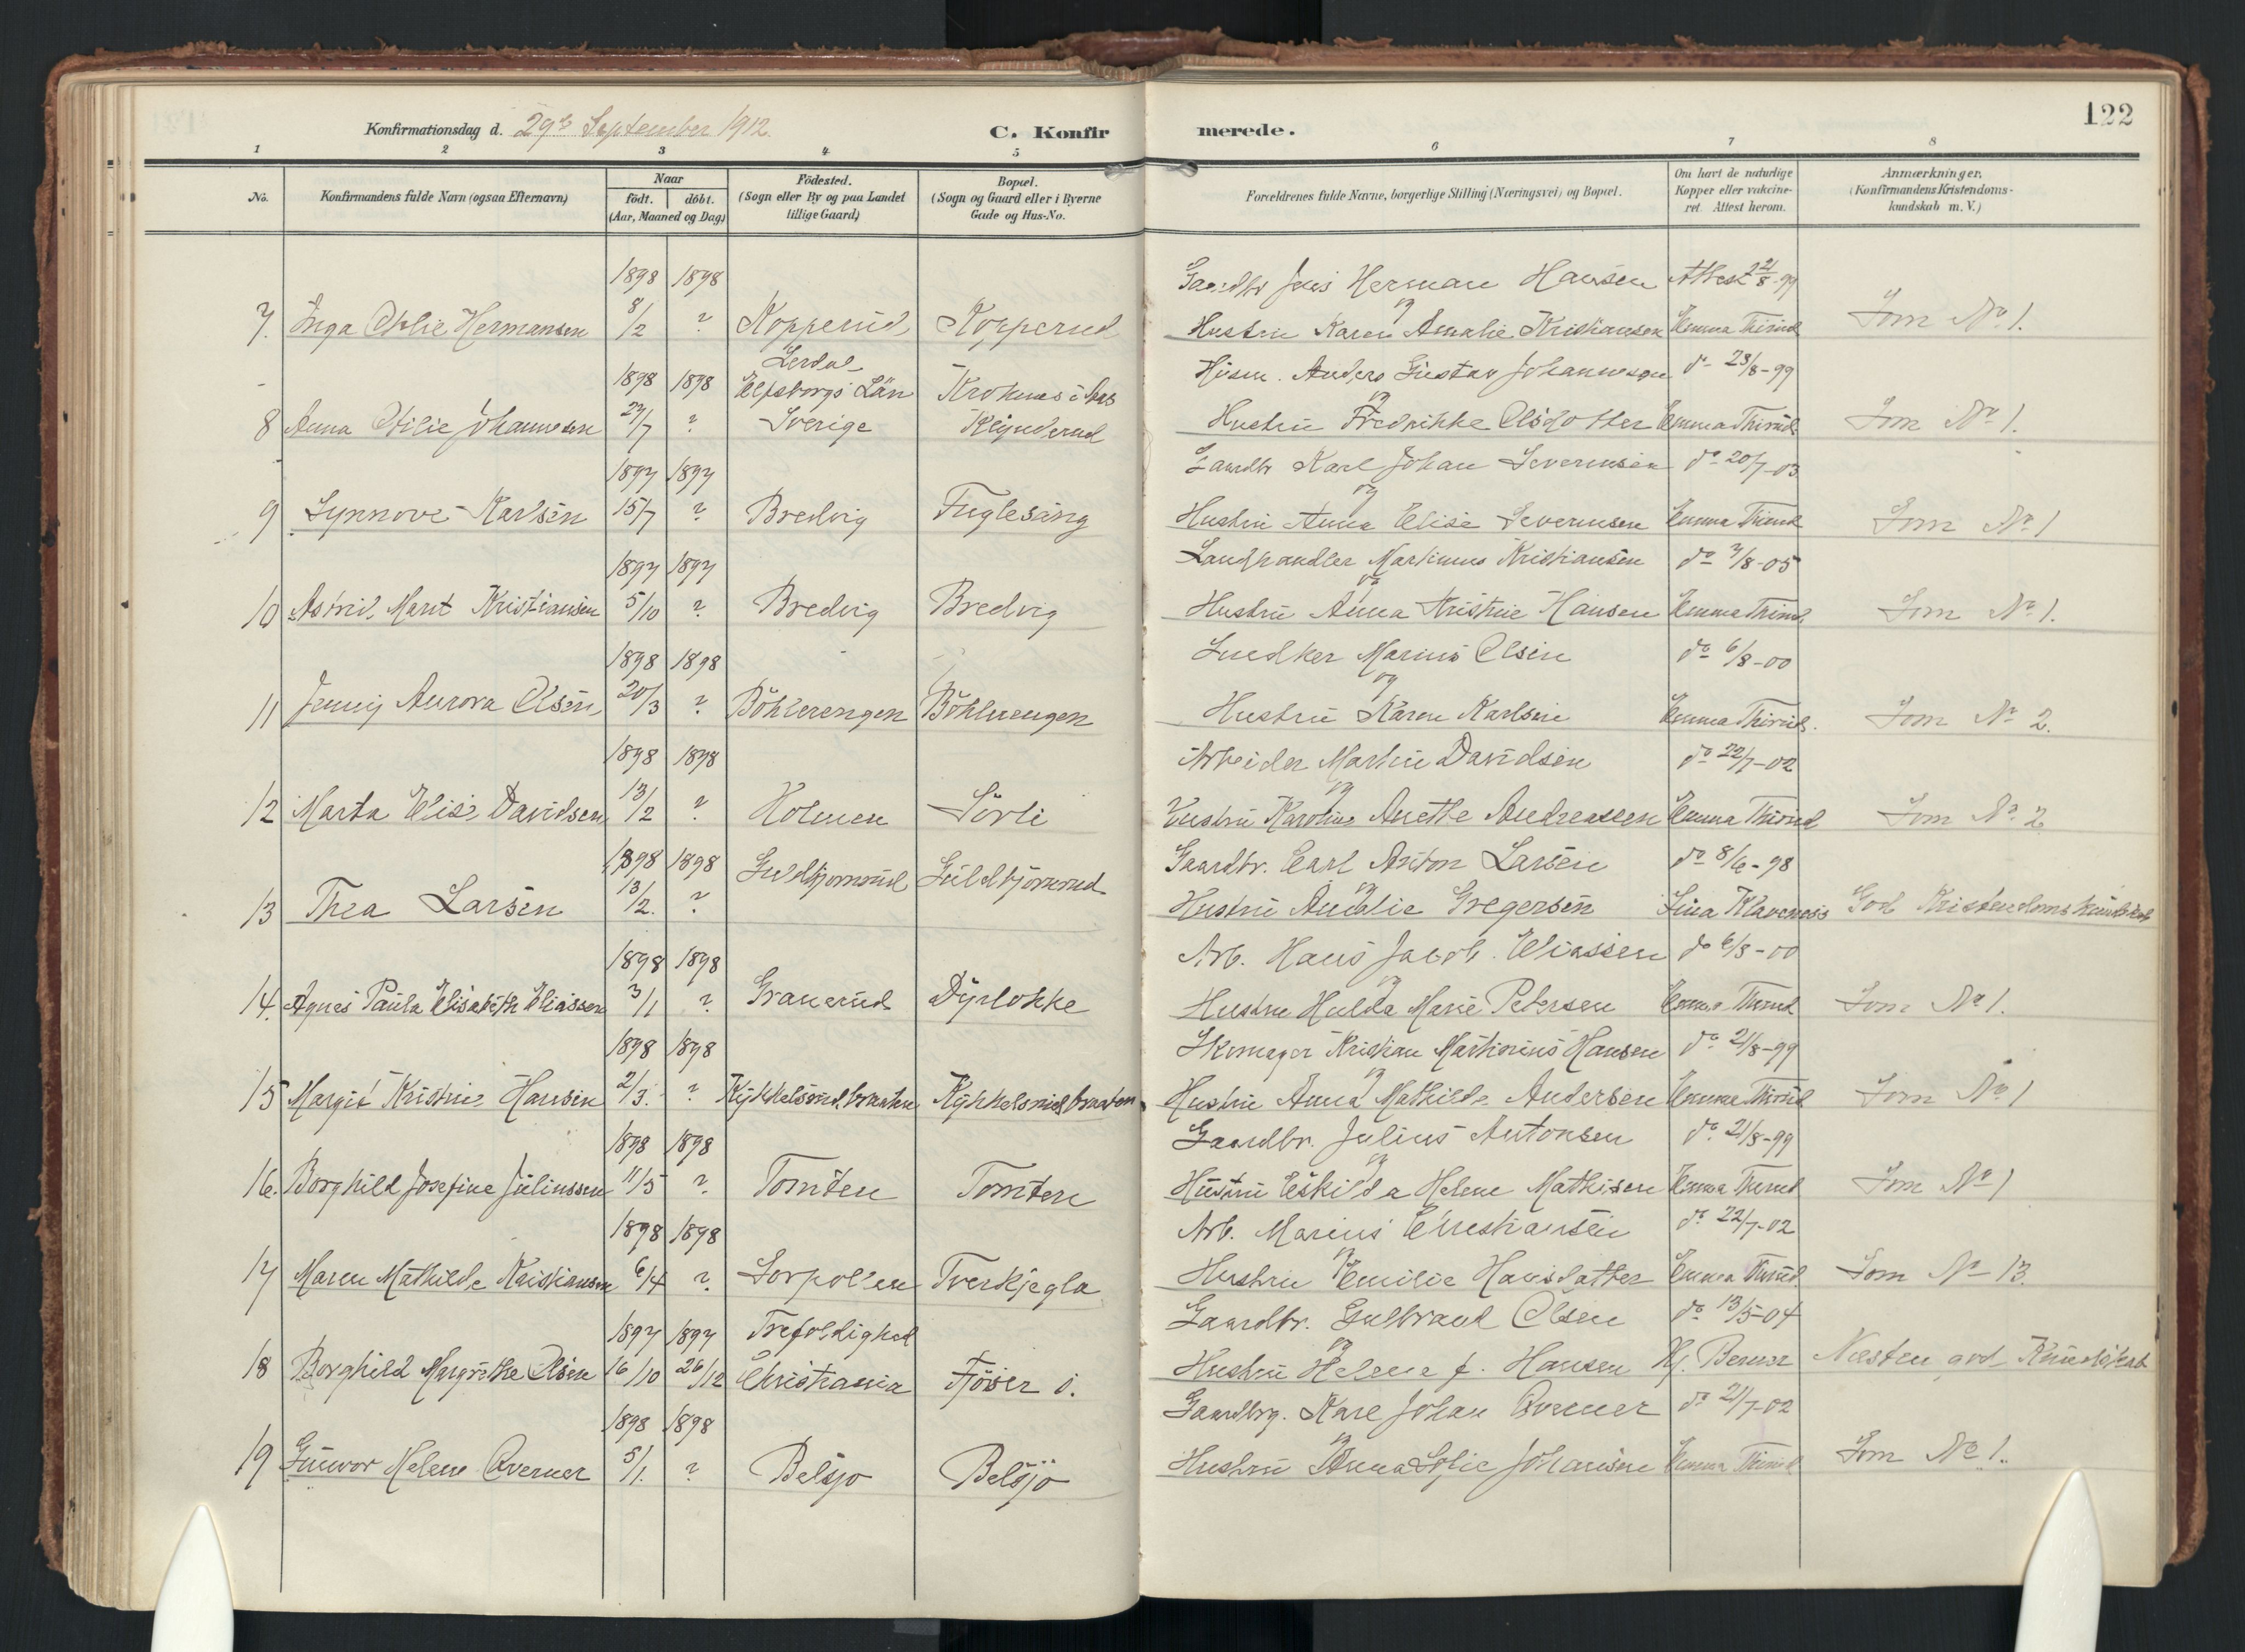 122
Konfirmationsdag d. 29de September 1912.
C. Konfirmerede.
1 2 3 4 5 6 7 8
No.
Konfirmandens fulde Navn (ogsaa Efternavn)
Naar
födt. döbt.
(Aar, Maaned og Dag)
Födested.
(Sogn eller By og paa Landet
tillige Gaard)
Bopæl.
(Sogn og Gaard eller i Byerne
Gade og Hus-No.
Forældrenes fulde Navne, borgerlige Stilling (Næringsvei) og Bopæl.
Om havt de naturlige
Kopper eller vakcine-
ret. Attest herom.
Anmærkninger.
(Konfirmandens Kristendoms-
kundskab m. V.)
1898 1898 Gaardbr Jens Herman Hansen Attest 22/8-99
og
7. Inga Othlie Hermansen 8/2 ? Kopperud Kopperud Hustru Karen Amalie Kristiansen Emma Thirud Som No 1.
Lerdal
1898 1898 Elfsborgs Län Husm. Anders Gustav Johannesen do 23/8-99
og
8 Anna Otilie Johannesen 27/7 ? Sverige Klynderud Hustru Fredrikke Olsdotter Emma Thirud Som No 1.
1897 1897 Gaardbr Karl Johan Severinsen do 20/7-03
og
9 Synnove Karlsen 15/7 ? Bredvig Fuglesang Hustru Anna Elise Severinsen Emma Thirud Som No 1
1897 1897 Landhandler Martinus Kristiansen do 7/8-05
og
10 Astrid Marit Kristiansen 5/10 ? Bredvig Bredvig Hustru Anna Kristine Hansen Emma Thirud Som No 1.
1898 1898 Snedker Marius Olsen do 6/8-00
og
11 Jenny Aurora Olsen 20/3 ? Böhlerengen Böhlerengen Hustru Karen Karlsen Emma Thirud. Som No 2.
1898 1898 Arbeider Martin Davidsen do 22/7-02
og
12 Marta Elise Davidsen 13/2 ? Holmen Sörli Hustru Karoline Anette Andreassen Emma Thirud Som No 2
1898 1898 Guldbjornrud Guldbjörnrud Gaardbr. Carl Anton Larsen do 8/6-98
og
13 Thea Larsen 13/2. ? Hustru Amalie Gregersen Lina Klaveness God Kristendomskundskab
1898 1898 Arb. Hans Jacob Eliassen do 6/8-00
og
14. Agnes Paula Elisabeth Eliassen 3/1 ? Granerud Dyrlokke Hustru Hulda Marie Petersen Emma Thirud Som No 1.
1898 1898 Skomager Kristian Martinius Hansen do 21/8-99
og
15 Margit Kristine Hansen 2/3. ? Kykkelsrudbraaten Kykkelsrudbraaten Hustru Anna Mathilde Andersen Emma Thirud Som No 1
1898 1898 Gaardbr. Julius Antonsen do 21/8-99
og
16. Borghild Josefine Juliussen 11/5 ? Tomten Tomten Hustru Eskilda Helene Mathisen Emma Thirud Som No 1
1898 1898 Arb. Marius Christiansen do 22/7-02
og
17 Maren Mathilde Kristiansen 6/4 ? Sorpollen Tverkjegla Hustru Emilie Hansdatter Emma Thirud. Som No 13.
1897 1897 Trefoldighed Gaardbr. Gulbrand Olsen do 13/5-04
og
18 Borghild Margrethe Olsen 16/10 26/12 Christiania Fjöser ö. Hustru Helene f. Hansen Hj. Berner Næsten god Kundskab
1898 1898 Gaardbrg. Karl Johan Qverner do 21/7-02
og
19 Gunvor Helene Qverner 5/1. ? Belsjo Belsjö Hustru Anna Sofie Johansen Emma Thirud Som No 1.